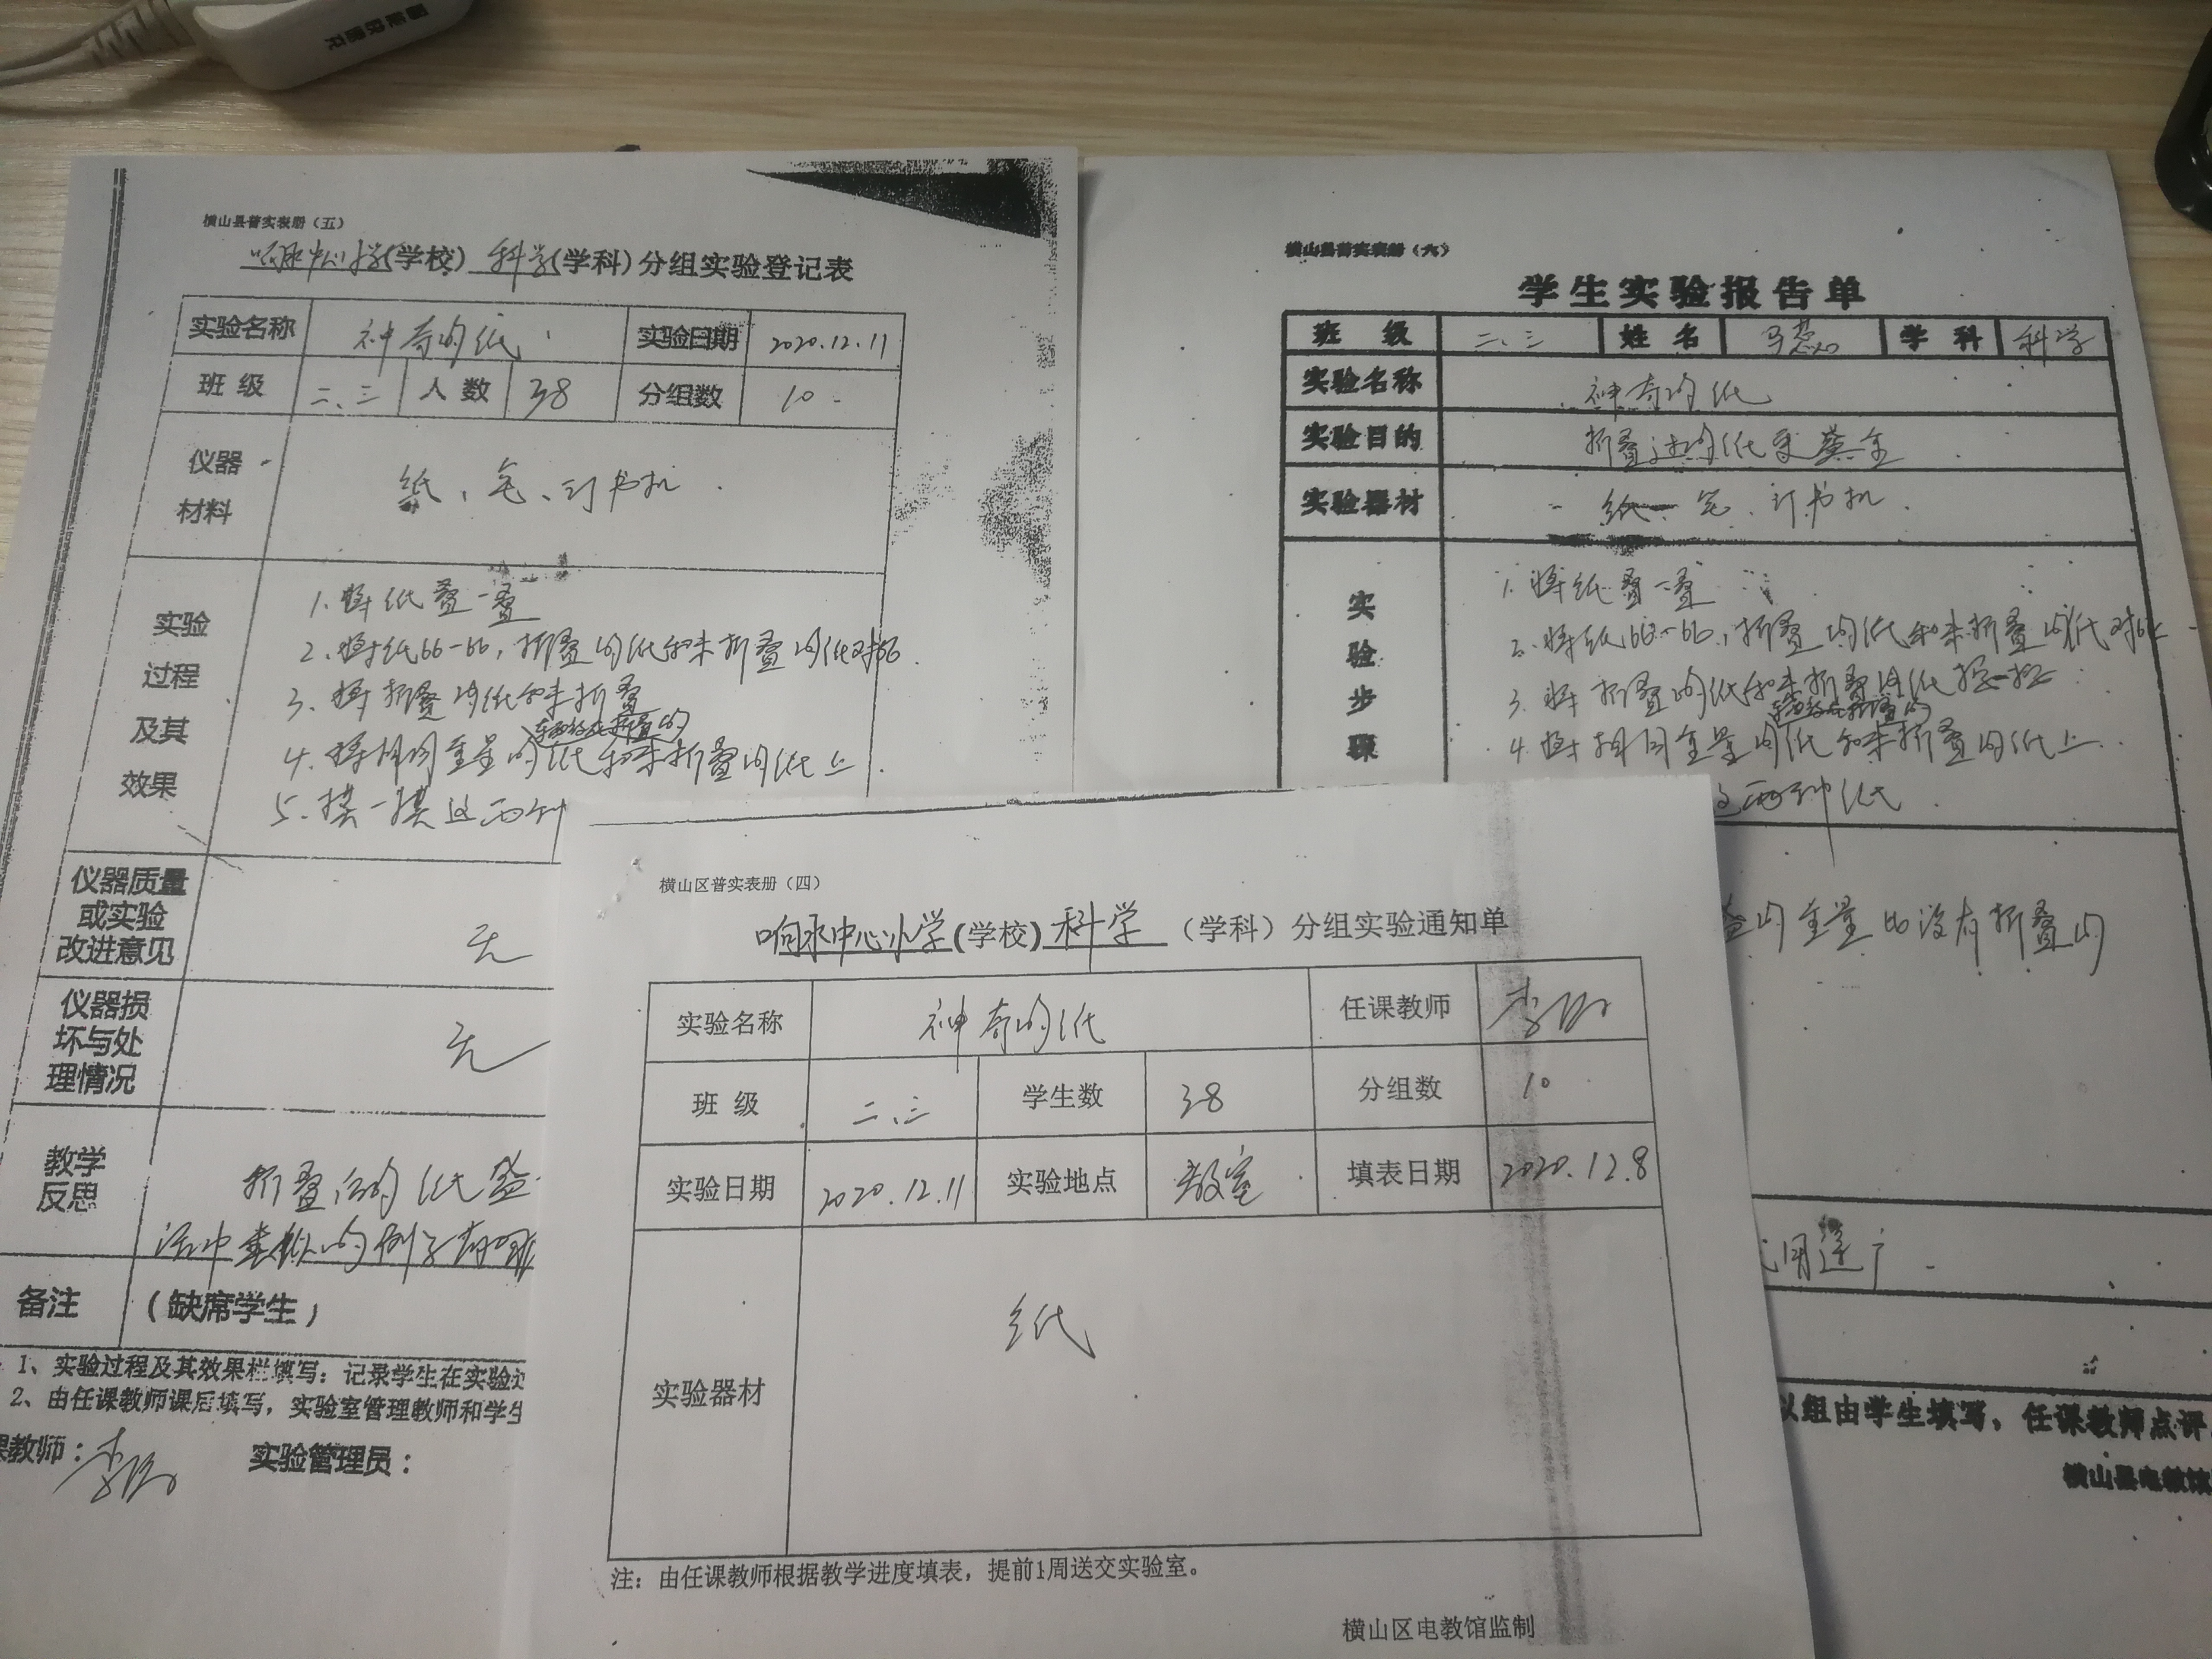 横山县普实表册（五）
响水中心小学(学校) 科学(学科)分组实验登记表
实验名称 神奇的纸 实验日期 2020.12.11
班 级 二、三 人 数 38 分组数 10
仪器
材料
纸、订书机
实验
过程
及其
效果
1.将纸叠一叠
2.将纸比一比，折叠的纸和未折叠的纸对比.
3.将折叠的纸和未折叠
东西放在折叠的
4.将相同重量的纸和未折叠的纸上.
5.摸一摸这两种
仪器质量
或实验
改进意见
无
仪器损
坏与处
理情况
无
教学
反思
折叠后的纸
活中类似的例子有哪
备注 (缺席学生)
1、实验过程及其效果栏填写：记录学生在实验过
2、由任课教师课后填写，实验室管理教师和学生
课教师： 李
实验管理员：
横山县普实表册（六）
学生实验报告单
班 级 二、三 姓 名 马慧 学 科 科学
实验名称 神奇的纸
实验目的 折叠过的纸更
实验器材 纸 订书机.
实
验
步
骤
1.将纸叠一叠
2.将纸比一比，折叠的纸和未折叠的纸对比
3.将折叠的纸和未折叠的纸
东西放在折叠的
4.将相同重量的纸和未折叠的纸上.
这两种纸.
叠的重量比没有折叠的
用途广.
以组由学生填写，任课教师点评
横山县电教馆
横山区普实表册（四）
响水中心小学(学校) 科学 （学科）分组实验通知单
实验名称 神奇的纸 任课教师 李
班 级 二、三 学生数 38 分组数 10
实验日期 2020.12.11 实验地点 教室 填表日期 2020.12.8
实验器材 纸
注：由任课教师根据教学进度填表，提前1周送交实验室。
横山区电教馆监制